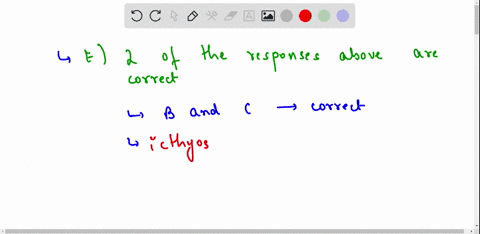 ↳ E) 2 of the responses above are
correct
↳ B and C → correct
↳ icthyos